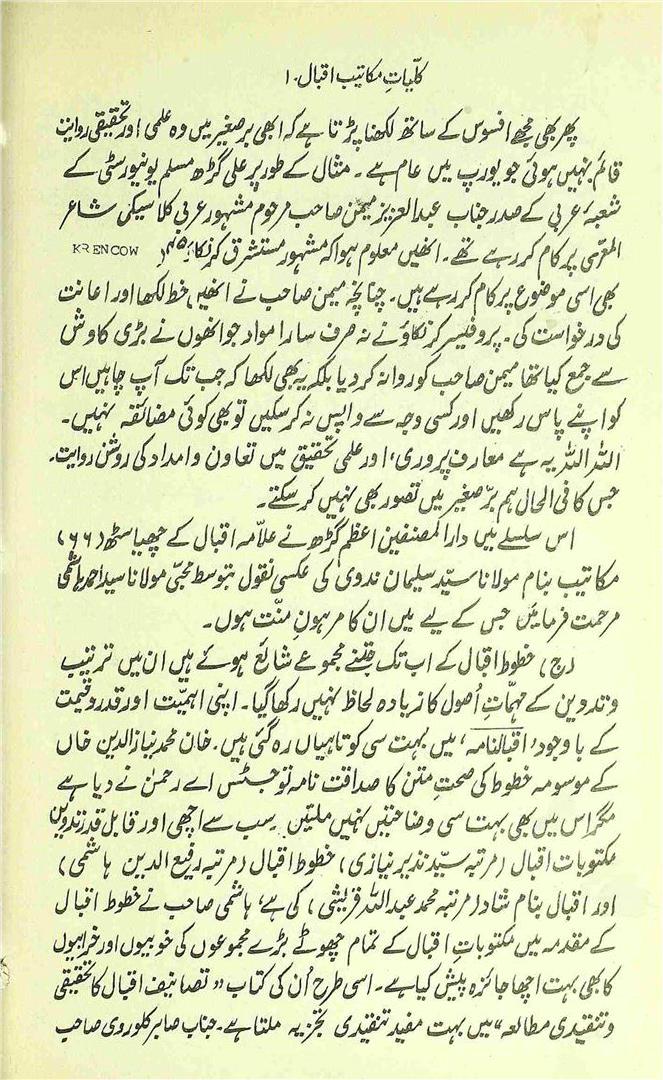 کلّیاتِ مکاتیب اقبال ۔ ۱
پھر بھی مجھے افسوس کے ساتھ لکھنا پڑتا ہے کہ ابھی برصغیر میں وہ علمی اور تحقیقی روایت
قائم نہیں ہوئی جو یورپ میں عام ہے ۔ مثال کے طور پر علی گڑھ مسلم یونیورسٹی کے
شعبۂ عربی کے صدر جناب عبدالعزیز میمن صاحب مرحوم مشہور عربی کلاسیکی شاعر
المعرّی پر کام کر رہے تھے ۔ انھیں معلوم ہوا کہ مشہور مستشرق کرنکاؤ KRENCOW
بھی اسی موضوع پر کام کر رہے ہیں ۔ چنانچہ میمن صاحب نے انھیں خط لکھا اور اعانت
کی درخواست کی ۔ پروفیسر کرنکاؤ نے نہ صرف سارا مواد جو انھوں نے بڑی کاوش
سے جمع کیا تھا میمن صاحب کو روانہ کر دیا بلکہ یہ بھی لکھا کہ جب تک آپ چاہیں اس
کو اپنے پاس رکھیں اور کسی وجہ سے واپس نہ کر سکیں تو بھی کوئی مضائقہ نہیں ۔
اللہ اللہ یہ ہے معارف پروری، اور علمی تحقیق میں تعاون و امداد کی روشن روایت۔
جس کا فی الحال ہم برّصغیر میں تصور بھی نہیں کر سکتے ۔
اس سلسلے میں دارالمصنفین اعظم گڑھ نے علاّمہ اقبال کے چھیاسٹھ (۶۶)
مکاتیب بنام مولانا سیّد سلیمان ندوی کی عکسی نقول بتوسط محبّی مولانا سید احمد ہاشمی
مرحمت فرمائیں جس کے لیے میں ان کا مرہونِ منّت ہوں ۔
(ج) خطوط اقبال کے اب تک جتنے مجموعے شائع ہوئے ہیں ان میں ترتیب
و تدوین کے مہمّاتِ اُصول کا زیادہ لحاظ نہیں رکھا گیا ۔ اپنی اہمیّت اور قدر و قیمت
کے باوجود ‘اقبالنامہ’ میں بہت سی کوتاہیاں رہ گئی ہیں ۔ خان محمد نیاز الدین خاں
کے موسومہ خطوط کی صحتِ متن کا صداقت نامہ تو جسٹس اے رحمٰن نے دیا ہے
مگر اس میں بھی بہت سی وضاحتیں نہیں ملتیں ۔ سب سے اچھی اور قابل قدر تدوین
مکتوبات اقبال (مرتبہ سیّد نذیر نیازی) خطوط اقبال (مرتبہ رفیع الدین ہاشمی)
اور اقبال بنام شاد (مرتبہ محمد عبداللہ قریشی) کی ہے، ہاشمی صاحب نے خطوط اقبال
کے مقدمہ میں مکتوباتِ اقبال کے تمام چھوٹے بڑے مجموعوں کی خوبیوں اور خرابیوں
کا بھی بہت اچھا جائزہ پیش کیا ہے ۔ اسی طرح اُن کی کتاب “تصانیف اقبال کا تحقیقی
و تنقیدی مطالعہ” میں بہت مفید تنقیدی تجزیہ ملتا ہے ۔ جناب صابر کلوروی صاحب